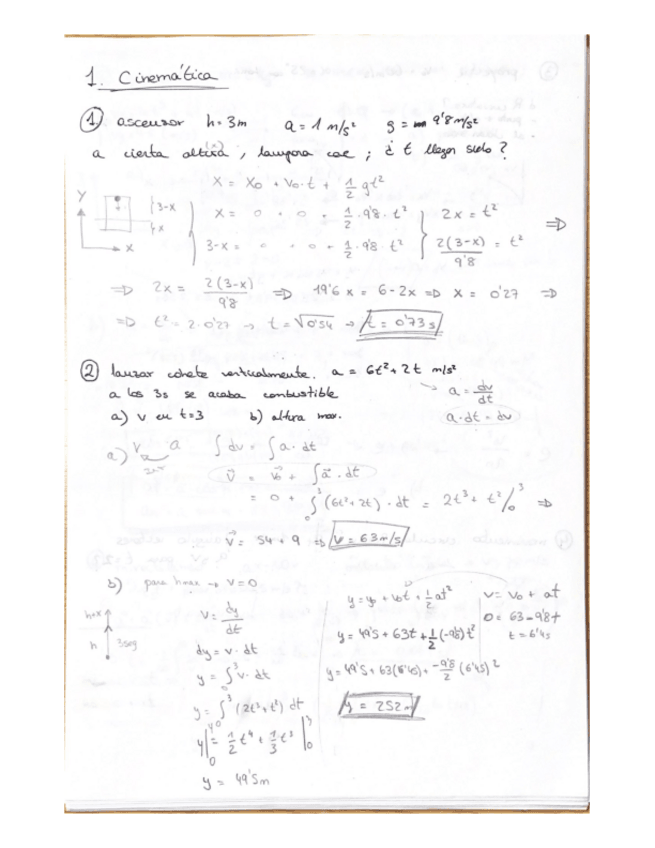 1. Cinemática
① ascensor h = 3m a = 1 m/s² g = 9'8 m/s²
a cierta altura (x), lampara cae ; ¿ t llegar suelo?
X = X₀ + V₀·t + 1/2 gt²
Y
3-x
x
X
X = 0 + 0 + 1/2 · 9'8 · t²
3-x = 0 + 0 + 1/2 · 9'8 · t²
2x = t²
2(3-x)/9'8 = t²
⇒
⇒ 2x = 2(3-x)/9'8 ⇒ 19'6 x = 6-2x ⇒ x = 0'27 ⇒
⇒ t² = 2·0'27 → t = √0'54 → t = 0'73 s
② lanzar cohete verticalmente. a = 6t² + 2t m/s²
a los 3s se acaba combustible
a) v en t=3 b) altura max.
→ a = dv/dt
a·dt = dv
a) V a ∫dv = ∫a·dt
V = V₀ + ∫a·dt
= 0 + ∫₀³ (6t²+2t)·dt = 2t³ + t² /₀³ ⇒
V = 54 + 9 ⇒ V = 63 m/s
b) para hmax → V=0
hmax
h
3seg
V = dy/dt
dy = v·dt
y = ∫₀³ v·dt
y = ∫₀³ (2t³+t²) dt
y|₀ʸ = 1/2 t⁴ + 1/3 t³ |₀³
y = 49'5m
y = y₀ + v₀t + 1/2 at²
y = 49'5 + 63t + 1/2 (-9'8) t²
y = 49'5 + 63(6'45) + -9'8/2 (6'45)²
y = 252 m
v = v₀ + at
0 = 63 - 9'8t
t = 6'4s